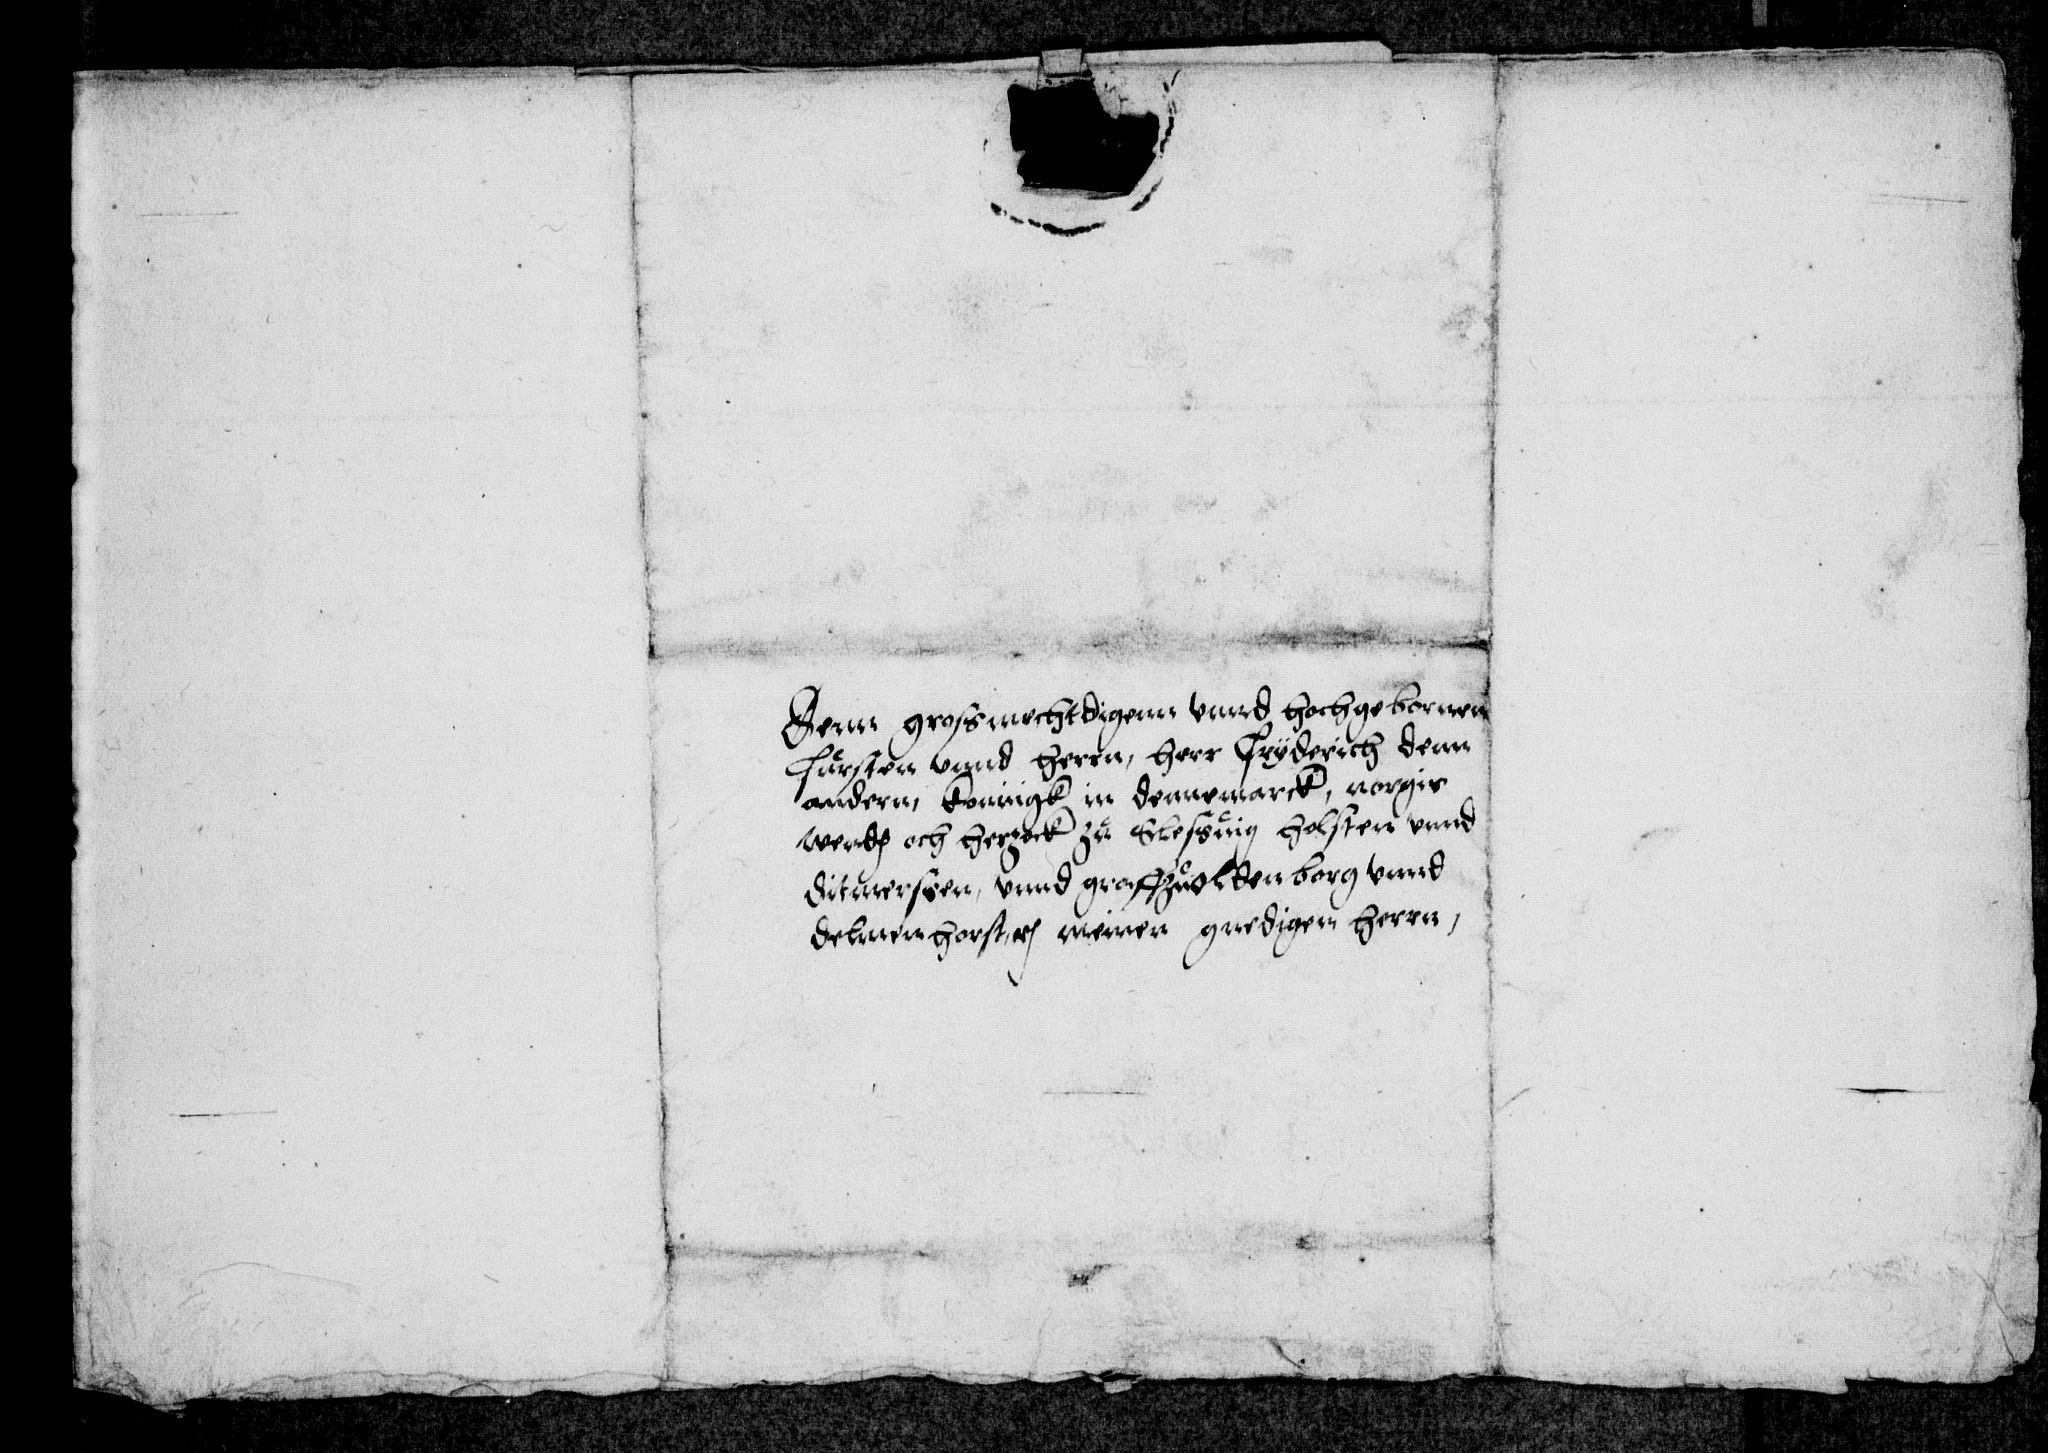 Denn grossmechtdigenn vnnd hochgebornen
fürsten vnnd herrn, herr Fryderich denn
andern, konnigk in dennemarck, norgis
wend och herzock zů Slessůig holsten vnnd
ditmerssen, vnnd graff zů oldenborg vnnd
delmenhorst, meinen gnedigen herrn,